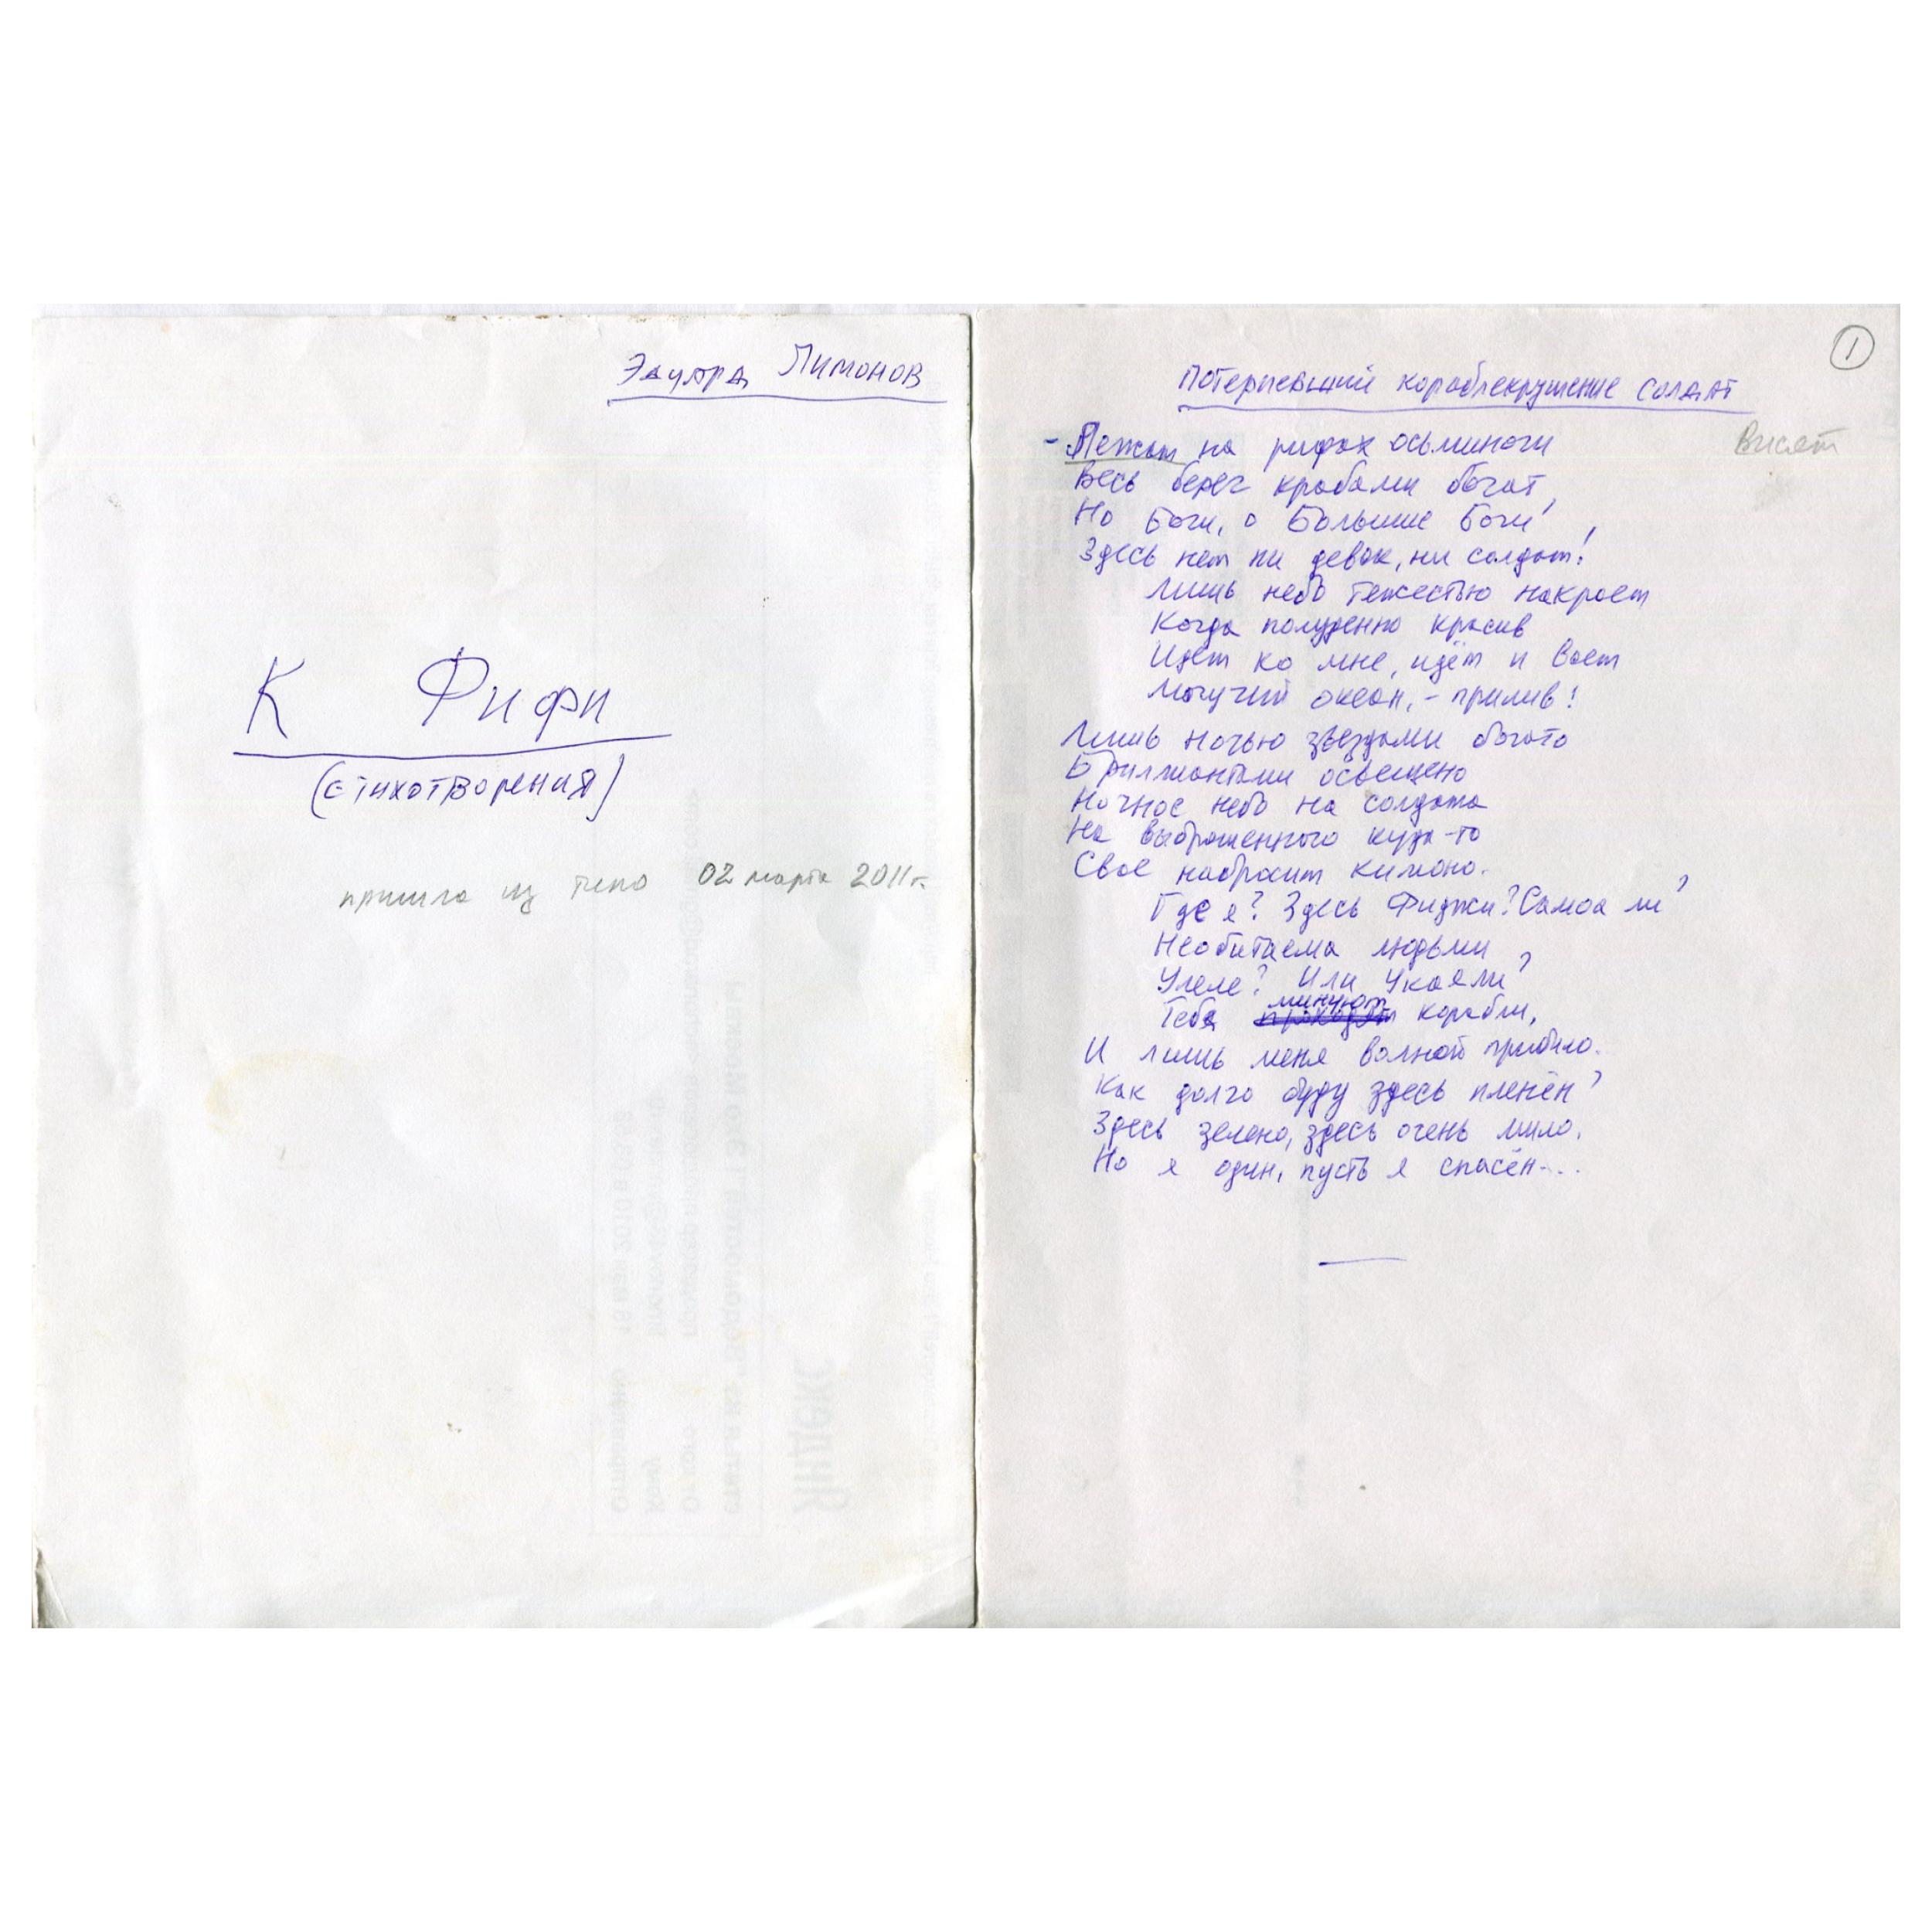 Эдуард Лимонов
К Фифи
(стихотворения)
пришла из тепа 02 марта 2011 г.
1
Потерпевший кораблекрушение солдат
Висят
- Лежат на рифах осьминоги
Весь берег крабами богат,
Но Боги, о Большие Боги!
Здесь нет ни девок, ни солдат!
Лишь небо тяжестью накроет
Когда полуденно красив
Идёт ко мне, идёт и воет
Могучий океан, - прилив!
Лишь ночью звездами богато
Бриллиантами освещено
Ночное небо на солдата
На выброшенного куда-то
Своё набросит кимоно.
Где я? Здесь Фиджи? Самоа ли?
Необитаема людьми
Увеле? Или Укаяли?
Тебя минуют корабли,
И лишь меня волной прибило.
Как долго буду здесь пленён?
Здесь зелено, здесь очень мило.
Но я один, пусть я спасён...